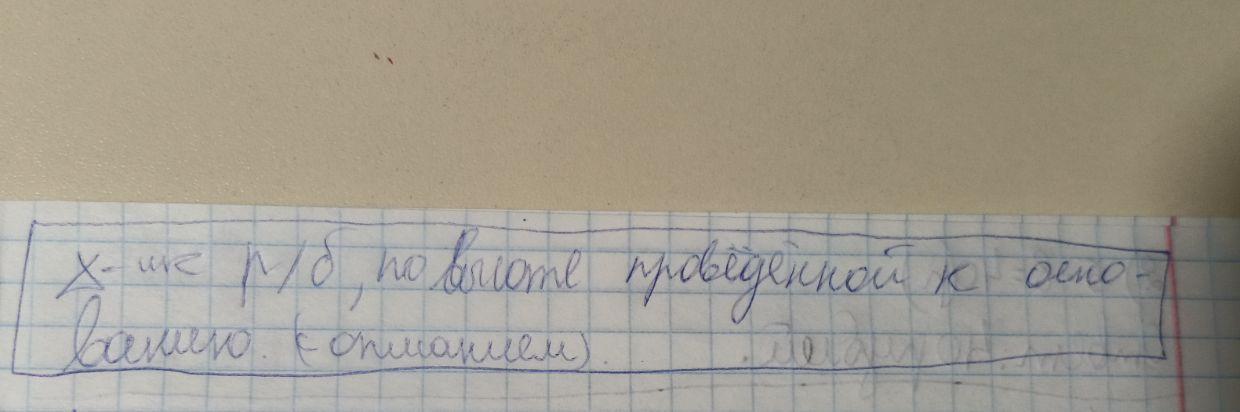 х-ик р/б, по высоте проведённой к осно-
ванию. (с описанием).